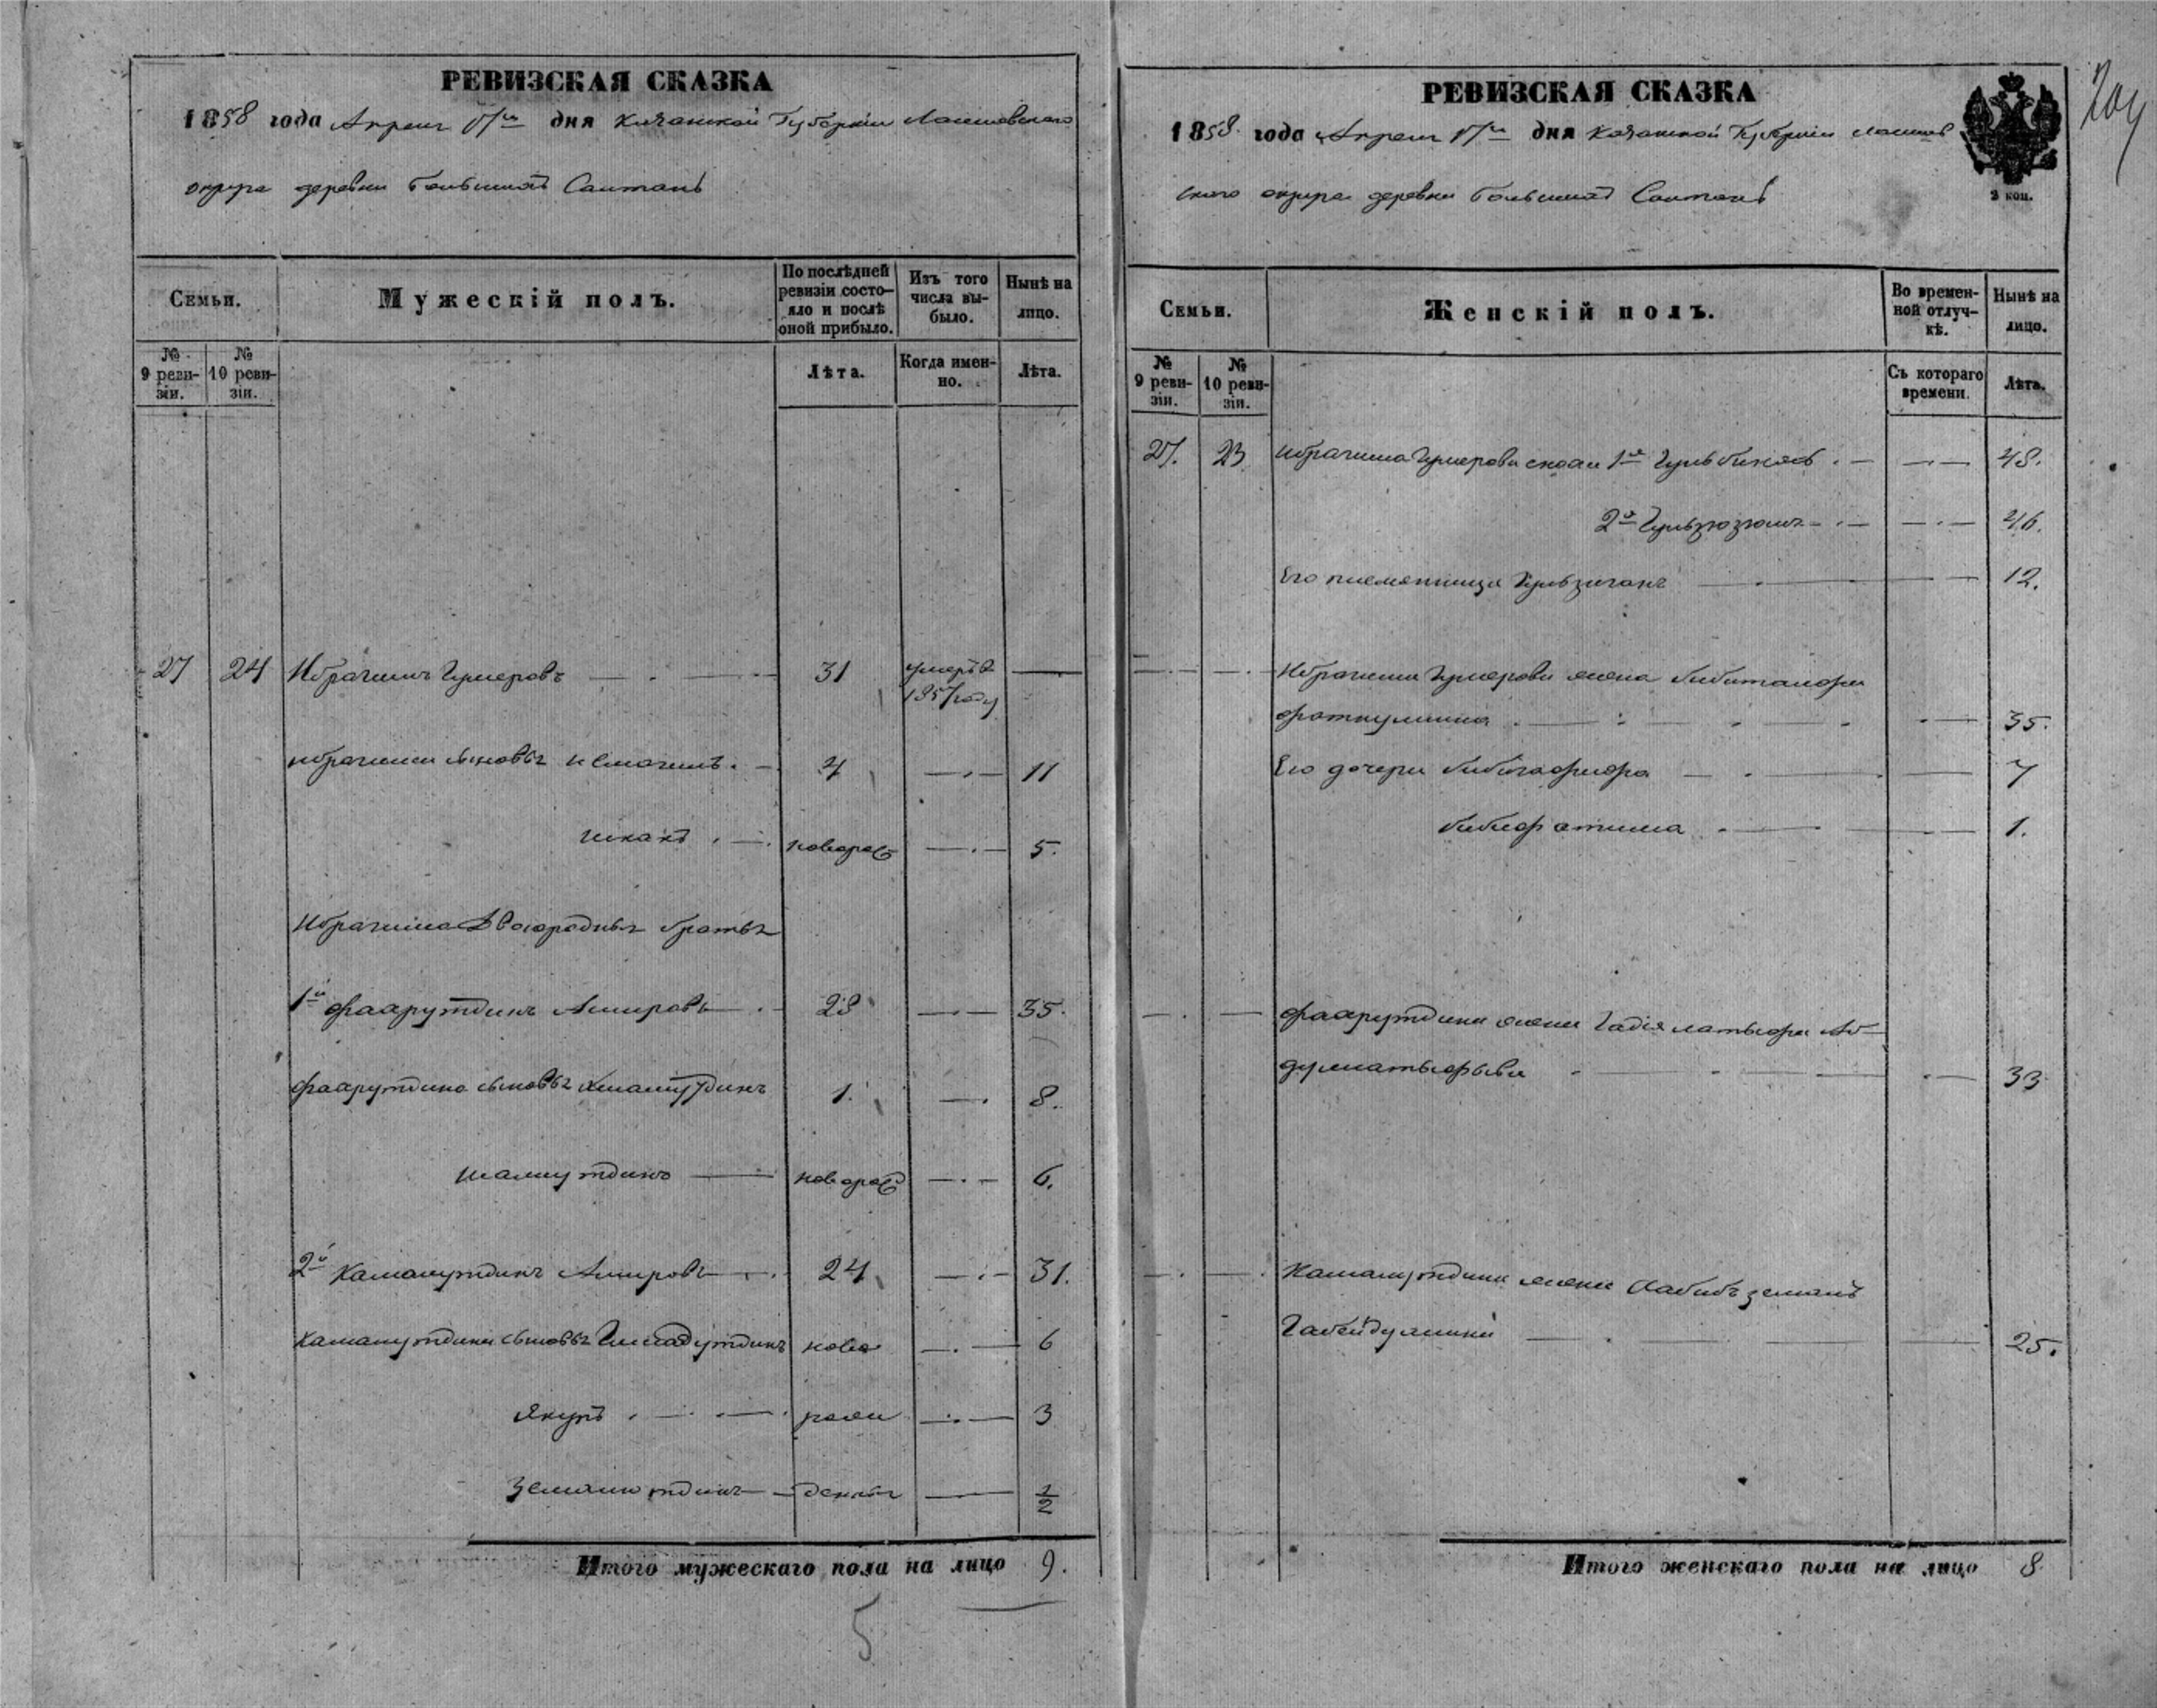 РЕВИЗСКАЯ СКАЗКА
1858 года Апреля 17го дня Казанской Губернiи Лаишевскаго
округа деревни Большихъ Саитанъ
Семьи.
Мужескiй полъ.
По послѣдней ревизiи состо-яло и послѣ оной прибыло.
Изъ того числа вы-было.
Нынѣ на лицо.
№ 9 реви-зiи.
№ 10 реви-зiи.
Лѣта.
Когда имен-но.
Лѣта.
27 24 Ибрагимъ Гумеровъ 31 умеръ въ 1857 году
Ибрагима сыновья Исмагилъ 4 11
новорож 5.
Ибрагима Двоюродныя братья
1й Фаарутдинъ Амировъ 28 35.
Фаарутдина сыновья 1. 8.
Шамсутдинъ новорож 6.
2й Камалутдинъ Амировъ 24 31.
Камалутдина сыновья Гимадутдинъ ново 6
Якупъ рож 3
Земалютдинъ дены 1/2
Итого мужескаго пола на лицо 9.
5
РЕВИЗСКАЯ СКАЗКА
204
1858 года Апреля 17го дня Казанской Губернiи Лаишев
скаго округа деревни Большихъ Саитанъ
3 коп.
Семьи.
Женскiй полъ.
Во времен-ной отлуч-кѣ.
Нынѣ на лицо.
№ 9 реви-зiи.
№ 10 реви-зiи.
Съ котораго времени.
Лѣта.
27. 23 Ибрагима Гумерова 1я Гульбикясъ 48.
2я Гульзюзюмъ 46.
Его племянница Гульзиганъ 12.
Ибрагима Гумерова жена
Фаткулина 35.
Его дочери Бибигафифа 7
Бибифатима 1.
Фаарутдина жена Гадiя Латыфа Аб-
дулатыфыва 33
Камалутдина жена Хабибъ земалъ
Габейдулина 25.
Итого женскаго пола на лицо 8.